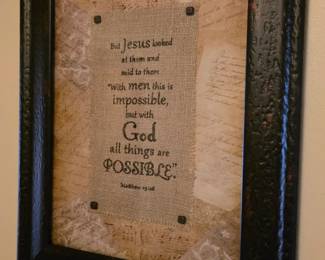 But Jesus looked
at them and
said to them
"With men this is
impossible,
but with
God
all things are
POSSIBLE."
Matthew 19:26